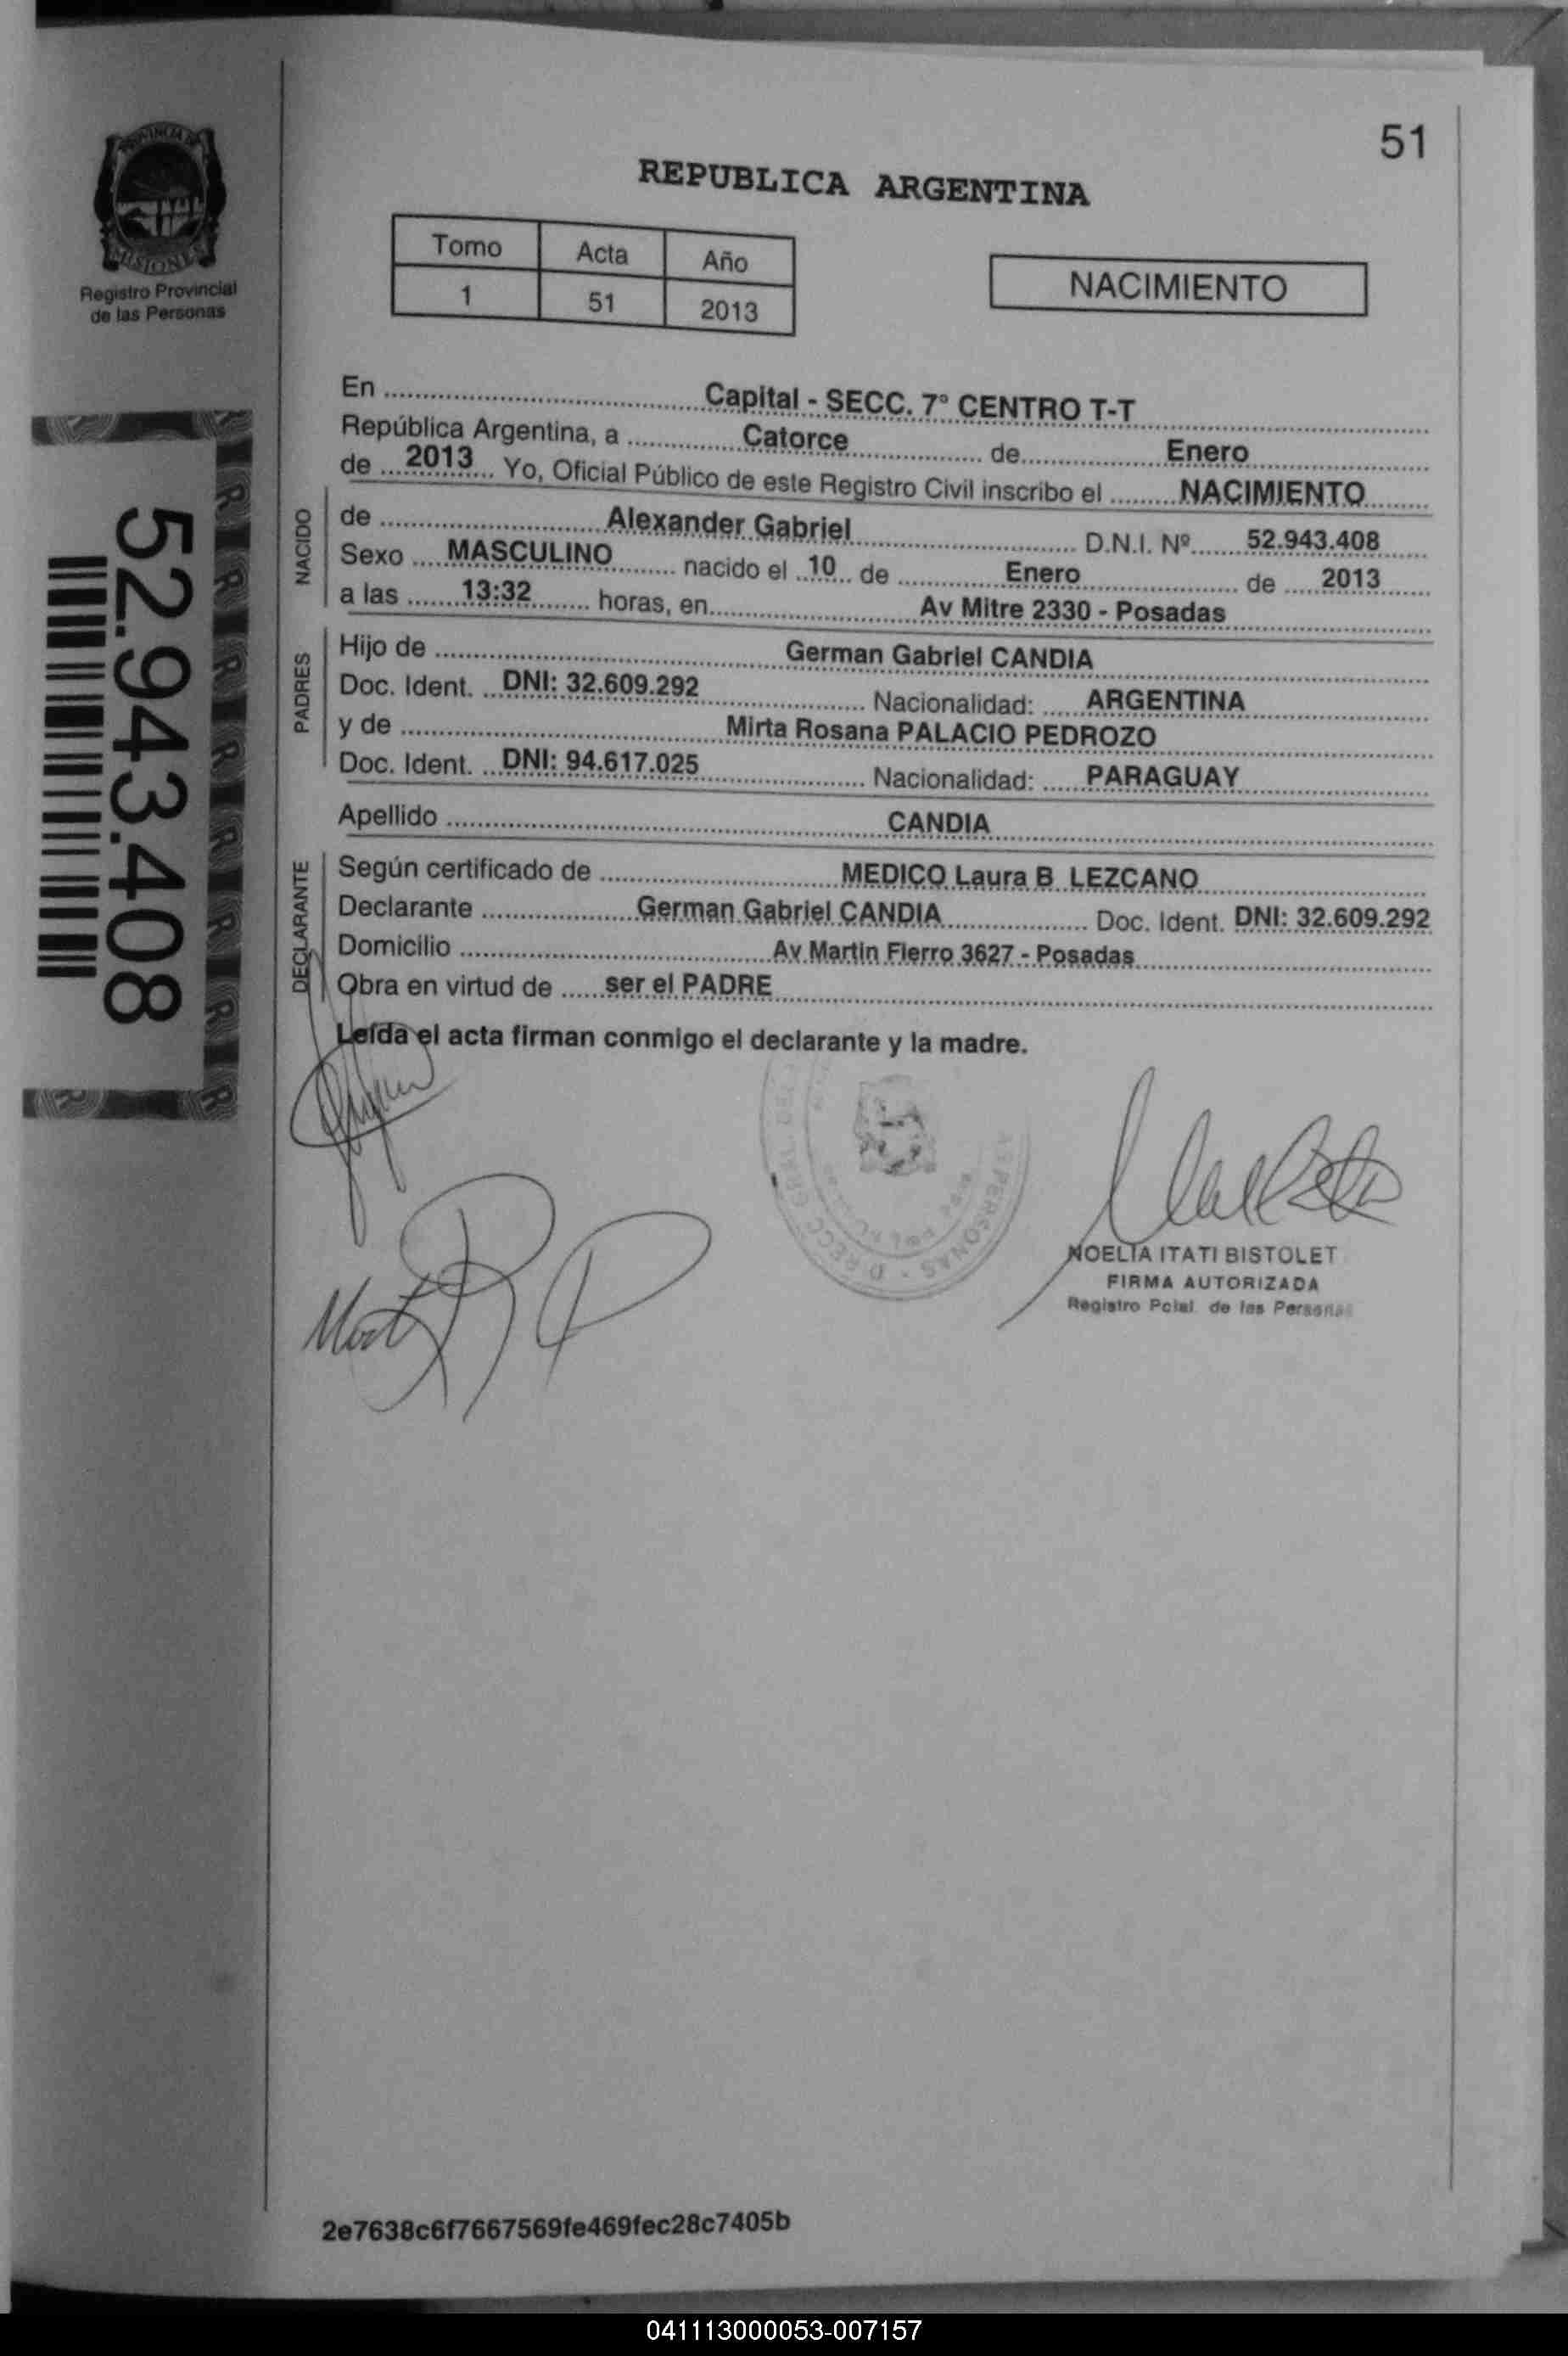 51
PROVINCIA DE
MISIONES
Registro Provincial
de las Personas
REPUBLICA ARGENTINA
Tomo Acta Año
1 51 2013
NACIMIENTO
52.943.408
En Capital - SECC. 7° CENTRO T-T
República Argentina, a Catorce de Enero
de 2013 Yo, Oficial Público de este Registro Civil inscribo el NACIMIENTO
NACIDO
de Alexander Gabriel D.N.I. Nº 52.943.408
Sexo MASCULINO nacido el 10 de Enero de 2013
a las 13:32 horas, en Av Mitre 2330 - Posadas
PADRES
Hijo de German Gabriel CANDIA
Doc. Ident. DNI: 32.609.292 Nacionalidad: ARGENTINA
y de Mirta Rosana PALACIO PEDROZO
Doc. Ident. DNI: 94.617.025 Nacionalidad: PARAGUAY
Apellido CANDIA
DECLARANTE
Según certificado de MEDICO Laura B LEZCANO
Declarante German Gabriel CANDIA Doc. Ident. DNI: 32.609.292
Domicilio Av Martin Fierro 3627 - Posadas
Obra en virtud de ser el PADRE
Leída el acta firman conmigo el declarante y la madre.
NOELIA ITATI BISTOLET
FIRMA AUTORIZADA
Registro Pcial. de las Personas
2e7638c6f7667569fe469fec28c7405b
041113000053-007157